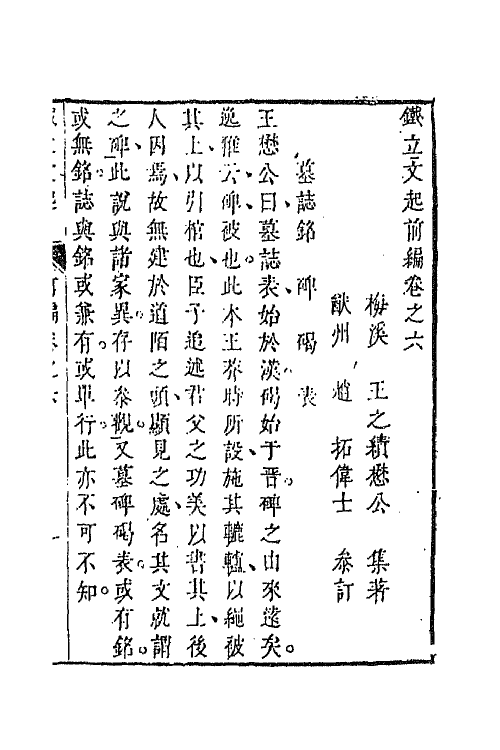 鐵立文起前編卷之六
梅溪 王之績懋公 集著
猷州 趙 拓偉士 叅訂
墓誌銘 碑 碣 表
王懋公曰墓誌表始於漢碣始于晉碑之由來遠矣。
逸雅云碑被也此本王莽時所設施其轆轤以繩被
其上以引棺也臣子追述君父之功美以書其上後
人因焉故無建於道陌之頭顯見之處名其文就謂
之碑此說與諸家異存以叅觀又墓碑碣表或有銘。
或無銘誌與銘或兼有或單行此亦不可不知。